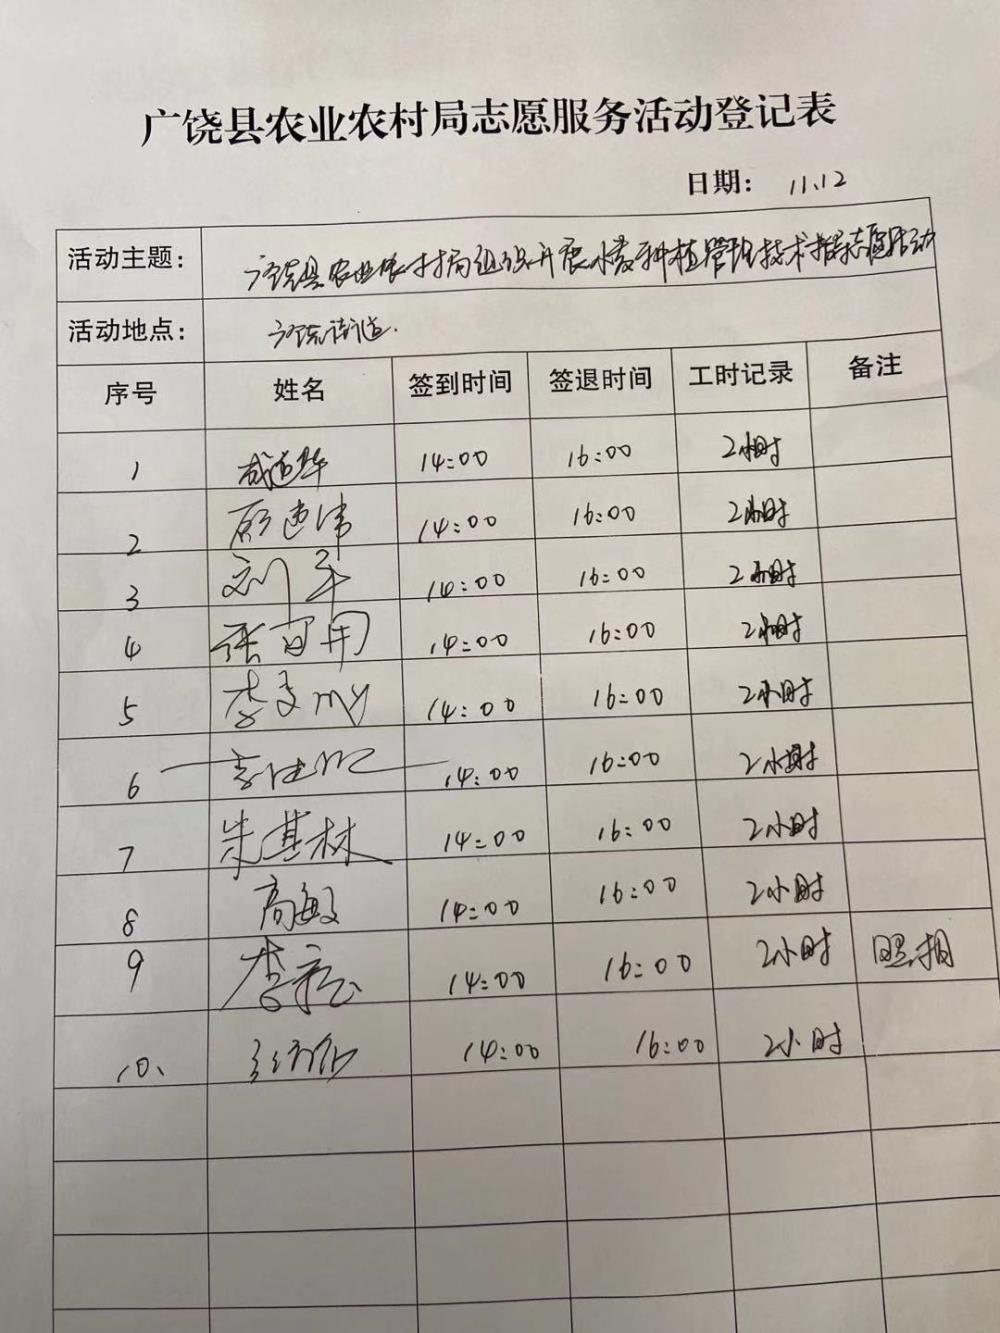 广饶县农业农村局志愿服务活动登记表
日期： 11.12
活动主题： 广饶县农业农村局组织开展小麦种植管理技术指导志愿活动
活动地点： 广饶街道.
序号 姓名 签到时间 签退时间 工时记录 备注
1 14:00 16:00 2小时
2 14:00 16:00 2小时
3 刘军 14:00 16:00 2小时
4 张百用 14:00 16:00 2小时
5 14:00 16:00 2小时
6 14:00 16:00 2小时
7 朱其林 14:00 16:00 2小时
8 高敏 14:00 16:00 2小时
9 14:00 16:00 2小时 照相
10、 14:00 16:00 2小时